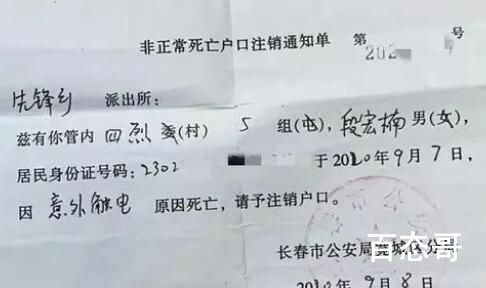 非正常死亡户口注销通知单 第202 号
先锋乡 派出所：
兹有你管内 四烈 委(村) 5 组(屯)，段宏楠 男(女)，
居民身份证号码：2302 于2020年9月7日，
因 意外触电 原因死亡，请予注销户口。
百态哥
长春市公安局宽城区分局
2020年9月8日